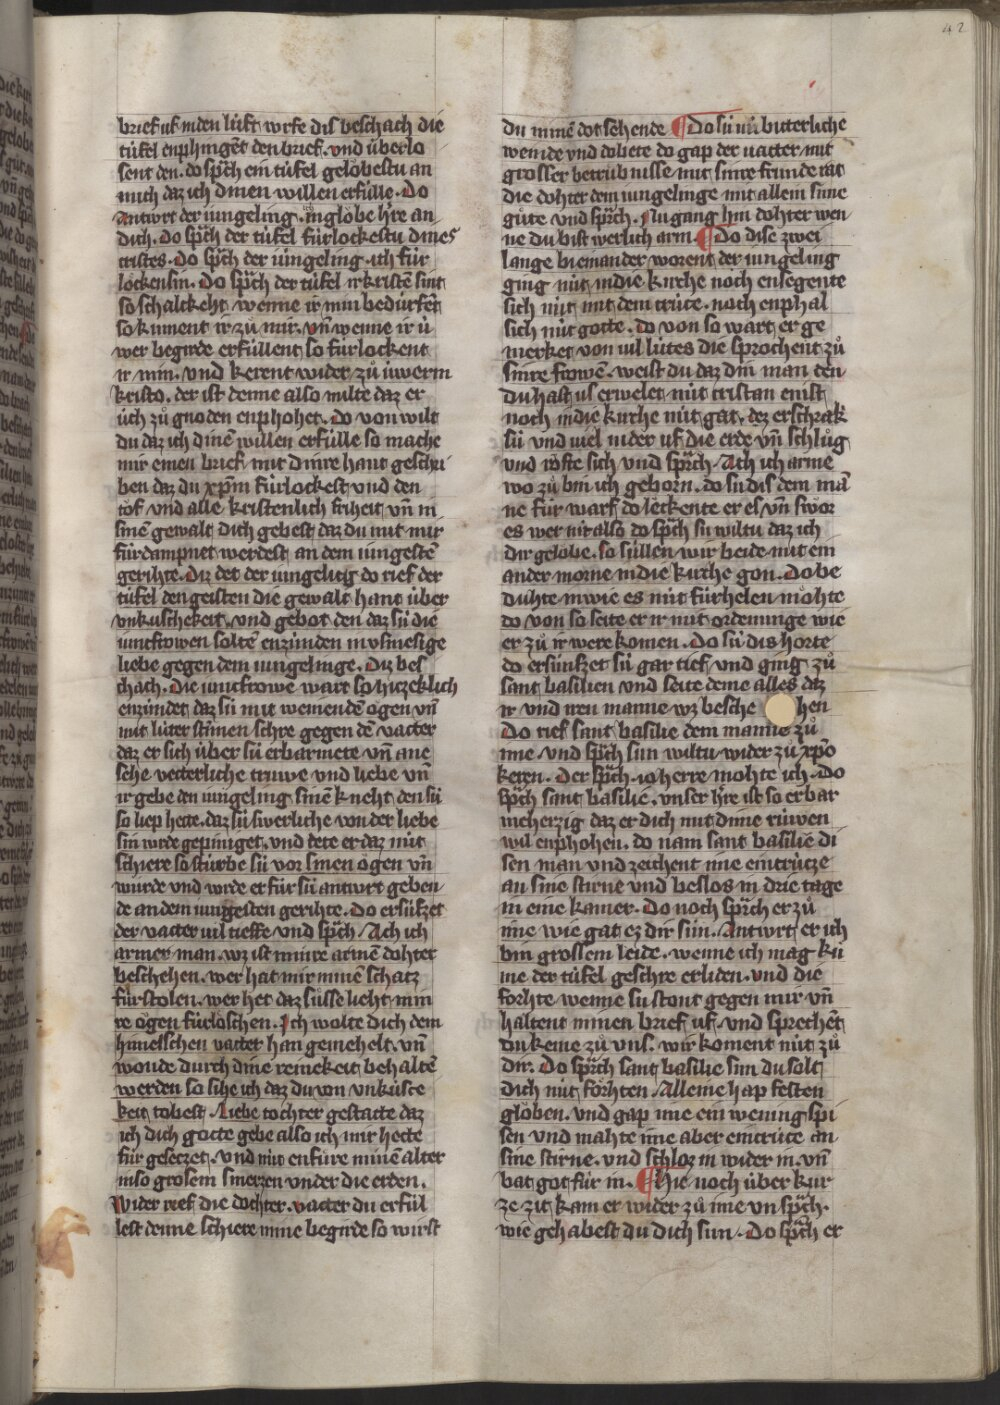 42
brief uf in den lúft wrfe dis beschach die
túfel enphingēt den brief. vnd úberlo
sent den. do sp̄ch ein túfel gelobestu an
mich daz ich dinen willen erfúlle. Do
antwrt der iungeling. ich glöbe h're an
dich. Do sp̄ch der túfel fúrlockestu dines
cristes. Do sp̄ch der iúngeling. ich für
löckensin. Do sp̄ch der túfel ir kristē sint
so schalckeht. wenne ir min bedúrfēt
so kument ir zů mir. vn̄ wenne ir ú
wer begirde erfúllent so fúrlockent
ir min. vnd kerent wider zů úwerm
kristo. der ist denne also milte daz er
úch zů gnoden enphohet. Do von wilt
du daz ich dinē willen erfúlle so mache
mir einen brief mit dinre hant geschri
ben daz du xp̄m fúrlockest vnd den
tof vnd alle kristenlich friheit vn̄ in
sinē gewalt dich gebest daz du mit mir
fúrdampnet werdest an dem iungestē
gerihte. Diz det der iungeling do rief der
túfel den geisten die gewalt hant úber
vnkúschekeit. vnd gebot den daz sú die
iuncfrowen soltē enzúnden in vsinesige
liebe gegen dem iungelinge. Diz bes
chach. Die iuncfrowe wart so hiczeklich
enzúndet daz sú mit weinendē ögen vn̄
mit luter stīmen schre gegen dē vatter
daz er sich úber sú erbarmete vn̄ ane
sehe vetterliche truwe vnd liebe vn̄
ir gebe den iungeling sinē kneht den sú
so liep hette. daz sú swerliche von der liebe
sin wrde gepiniget. vnd tete er daz nút
schiere so stúrbe sú vor sinen ögen vn̄
wurde vnd wrde er fúr sú antwrt geben
de an dem iungesten gerihte. Do ersúfzet
der vatter vil tieffe vnd sp̄ch Ach ich
armer man. wz ist minre armē dohter
beschehen. wer hat mir minē schatz
fúrstolen. wer het daz sússe lieht min
re ögen fúrlöschen. Ich wolte dich dem
himelschen vatter han gemehelt. vn̄
wonde durch dine reinekeit behaltē
werden so sihe ich daz du von vnkúsce
keit tobest. Liebe tochter gestatte daz
ich dich gotte gebe also ich mir hette
fúr geseczet. vnd nút enfúre minē alter
in so grosem smerzen vnder die erden.
Wider reef die dochter. vatter du erfúl
lest denne schiere mine begirde so wirst
du minē dot sehende ¶ Do sú nú bitterliche
weinde vnd dobete do gap der vatter mit
grosser betrúbnisse mit sinre frúnde rat
die dohter dem iungelinge mit allem sime
gůte vnd sp̄rch. Nu gang hin dohter wen
ne du bist werlich arm. ¶ Do dise zwei
lange bienander worent der iungeling
ging nút in die kirche noch ensegente
sich nút mit dem crúce. noch enphal
sich nút gotte. do von so wart er ge
merket von vil lútes die sprochent zů
sinre frowē. weist du daz din man den
du hast us erwelet nút cristan enist
noch in die kirche nút gat. dez erschrak
sú vnd viel nider uf die erde vn̄ schlůg
vnd röfte sich vnd sp̄rch. Ach ich arme
wo zů bin ich geborn. do sú dis dem mā
ne fúr warf do leckente er es vn̄ swor
es wer nút also do sp̄ch sú wiltu daz ich
dir gelöbe. so súllen wir beide mit ein
ander morne in die kirche gon. Do be
duhte in wie es nút fúrhelen möhte
do von so seite er ir mit ordenunge wie
er zů ir were komen. Do sú dis horte
do ersúnfzet sú gar tief vnd ging zů
sant basilien vnd seite deme alles daz
ir vnd iren manne wz besche hen
Do rief sant basilie dem manne zů
ime vnd sp̄ch sun wiltu wider zů xp̄o
keren. Der sp̄ch. io herre möhte ich. Do
sp̄ch sant basilie. vnser h're ist so erbar
mcherzig daz er dich mit dime rúwen
wil enphohen. do nam sant basilie di
sen man vnd zeichent ime ein crúcze
an sine stirne vnd beslos in drie tage
in eine kamer. Do noch sp̄rch er zů
ime wie gat ez dir sún. Antwrt er ich
bin grossem leide. wenne ich mag kú
me der túfel geschre erliden. vnd die
forhte wenne sú stont gegen mir vn̄
haltent minen brief uf. vnd sprechēt
du keme zů vns. wir koment nút zů
dir. Do sp̄rch sant basilie sun du solt
dich nút förhten. Alleine hap festen
globen. vnd gap ime ein wening spi
sen vnd mahte ime aber ein crúce an
sine stirne. vnd schloz in wider in. vn̄
bat got fúr in. ¶ Hie noch úber kur
ze zit kam er wider zů ime vn sp̄ch.
wie gehabest du dich sun. Do sp̄ch er